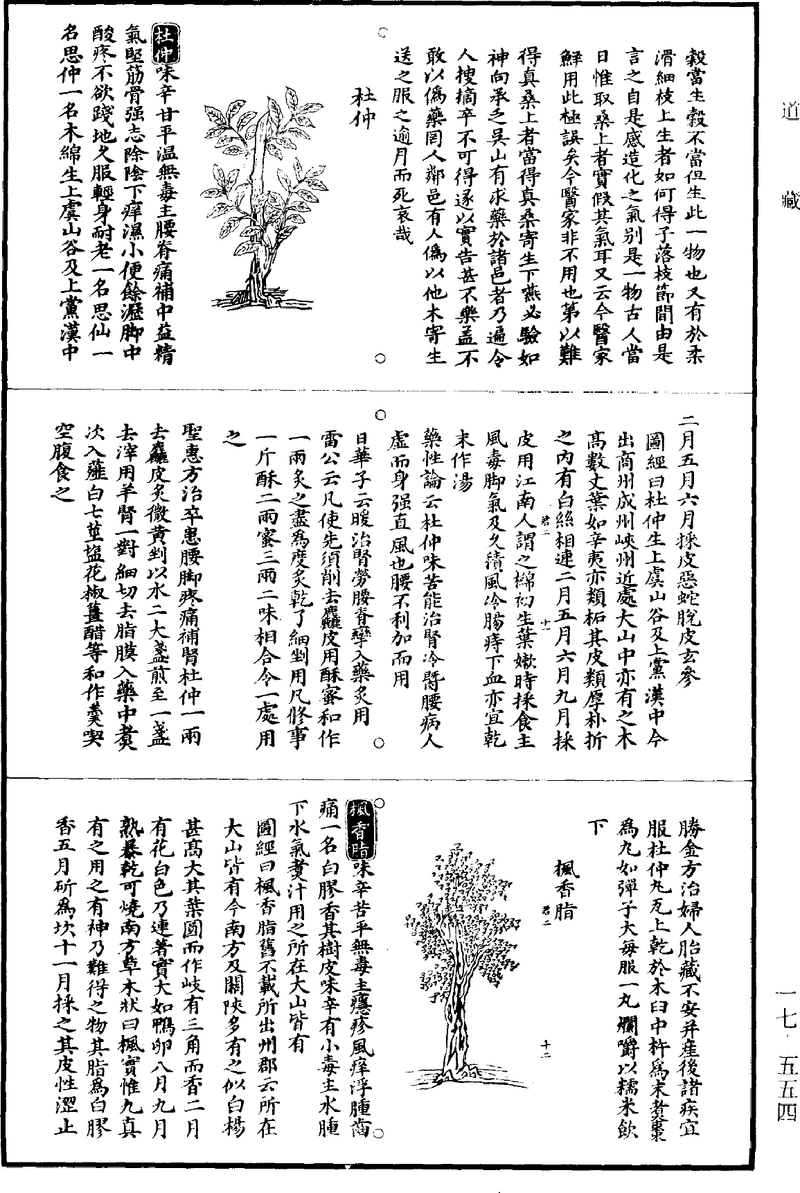 道藏
榖當生榖不當但生此一物也又有於柔
滑細枝上生者如何得子落枝節間由是
言之自是感造化之氣别是一物古人當
日惟取桑上者實假其氣耳又云今醫家
鮮用此極誤矣今醫家非不用也第以難
得真桑上者當得真桑寄生下嚥必驗如
神向承乏吳山有求藥於諸邑者乃遍令
人搜摘卒不可得遂以實告甚不樂盖不
敢以僞藥罔人鄰邑有人僞以他木寄生
送之服之逾月而死哀哉
杜仲
杜仲味辛甘平温無毒主腰脊痛補中益精
氣堅筋骨强志除陰下痒濕小便餘瀝脚中
酸疼不欲踐地久服輕身耐老一名思仙一
名思仲一名木綿生上虞山谷及上黨漢中
二月五月六月採皮惡蛇脱皮玄參
圖經曰杜仲生上虞山谷及上黨漢中今
出商州成州峽州近處大山中亦有之木
髙數丈葉如辛夷亦類柘其皮類厚朴折
之内有白絲相連二月五月六月九月採
皮用江南人謂之檰初生葉嫩時採食主
風毒脚氣及久積風冷腸痔下血亦宜乾
末作湯
藥性論云杜仲味苦能治腎冷䐴腰病人
虛而身强直風也腰不利加而用
日華子云暖治腎勞腰脊攣入藥炙用
雷公云凡使先須削去麤皮用酥蜜和作
一兩炙之盡為度炙乾了細剉用凡修事
一斤酥二兩蜜三兩二味相合令一處用
之
聖惠方治卒患腰脚疼痛補腎杜仲一兩
去麤皮炙微黄剉以水二大盞煎至一盞
去滓用羊腎一對細切去脂膜入藥中煑
次入薤白七莖塩花椒薑醋等和作羹喫
空腹食之
勝金方治婦人胎藏不安并産後諸疾宜
服杜仲丸瓦上乾於木臼中杵為末煑棗
為丸如彈子大每服一丸爛嚼以糯米飲
下
楓香脂
楓香脂味辛苦平無毒主癮疹風痒浮腫齒
痛一名白膠香其樹皮味辛有小毒主水腫
下水氣煑汁用之所在大山皆有
圖經曰楓香脂舊不載所出州郡云所在
大山皆有今南方及關陜多有之似白楊
甚髙大其葉圓而作歧有三角而香二月
有花白色乃連著實大如鴨卵八月九月
熟暴乾可燒南方草木狀曰楓實惟九真
有之用之有神乃難得之物其脂為白膠
香五月斫為坎十一月採之其皮性澀止
一七·五五四